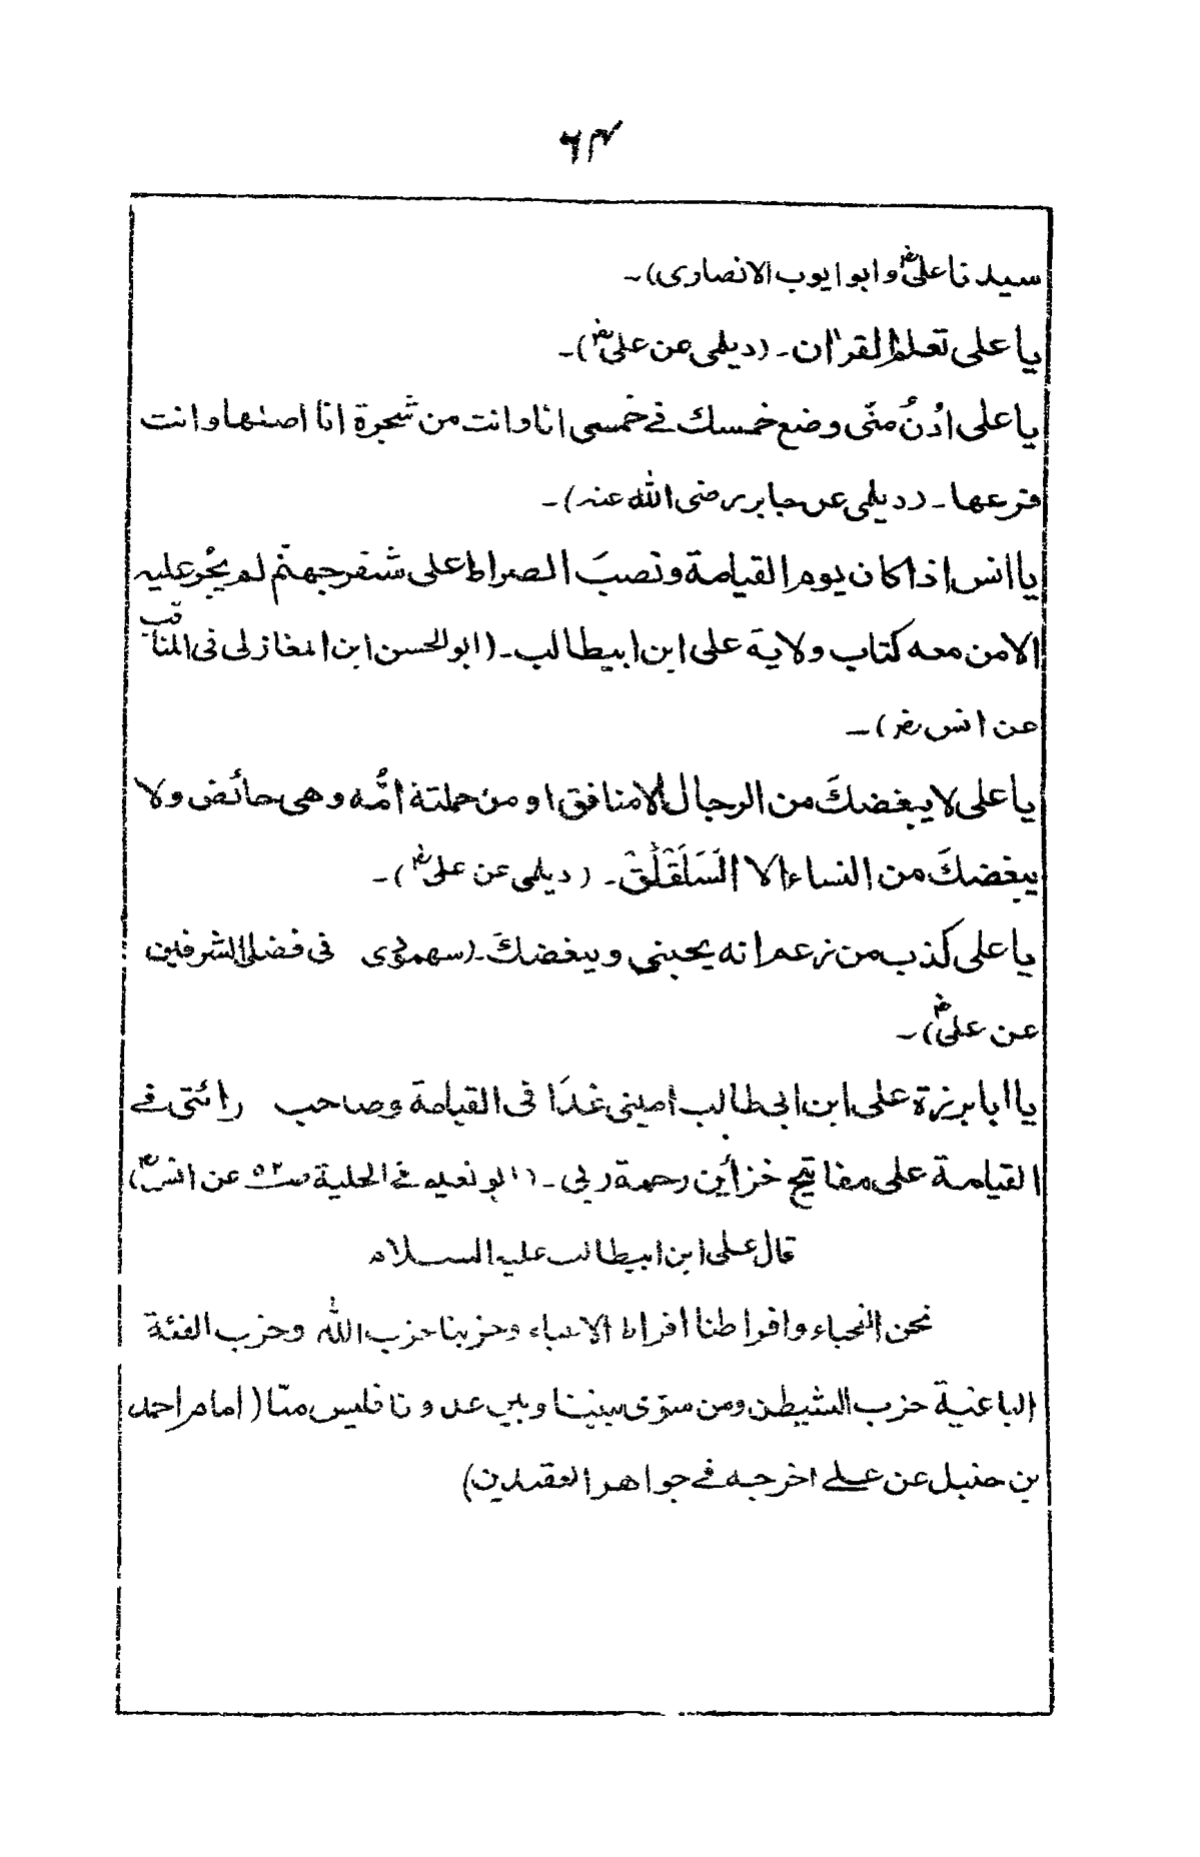 ۶۴
سیدنا علیؓ و ابو ایوب الانصاری)۔
یا علی تعلم القرٰان۔ (دیلمی عن علیؓ)۔
یا علی ادُنُ منّی وضع خمسك فے خمسی انا وانت من شجرة انا اصلها وانت
فرعها۔ (دیلمی عن جابر رضی الله عنہ)۔
یا انس اذا کان یوم القیامة ونصبَ الصراط علی شفر جهنّم لم یجُر علیہ
الامن معه کتاب ولایة علی ابن ابیطالب۔ (ابو الحسن ابن المغازلی فی المناقب
عن انس رضؓ)۔
یا علی لا یبغضكَ من الرجال الا منافق او من حملتة امُّه وهی حائض ولا
یبغضكَ من النساء الا السَلَقْلَقْ۔ (دیلمی عن علیؓ)۔
یا علی کذب من زعم انه یحبنی ویبغضكَ۔ (سمهودی فی فضل الشرفین
عن علیؓ)۔
یا ابا برزة علی ابن ابی طالب امینی غدًا فی القیامة وصاحب رائتی فے
القیامة علی مفاتیح خزأین رحمة ربی۔ (ابو نعیم فے الحلیة ص۵۲ عن انسؓ)
قال علی ابن ابیطالب علیہ السلام
نحن النجباء وافراطنا افراط الانبیاء وحزبنا حزب الله وحزب الفئة
الباغیة حزب الشیطن ومن سوّی بیننا وبین عدونا فلیس منّا (امام احمد
بن حنبل عن علے اخرجه فے جواهر العقدین)